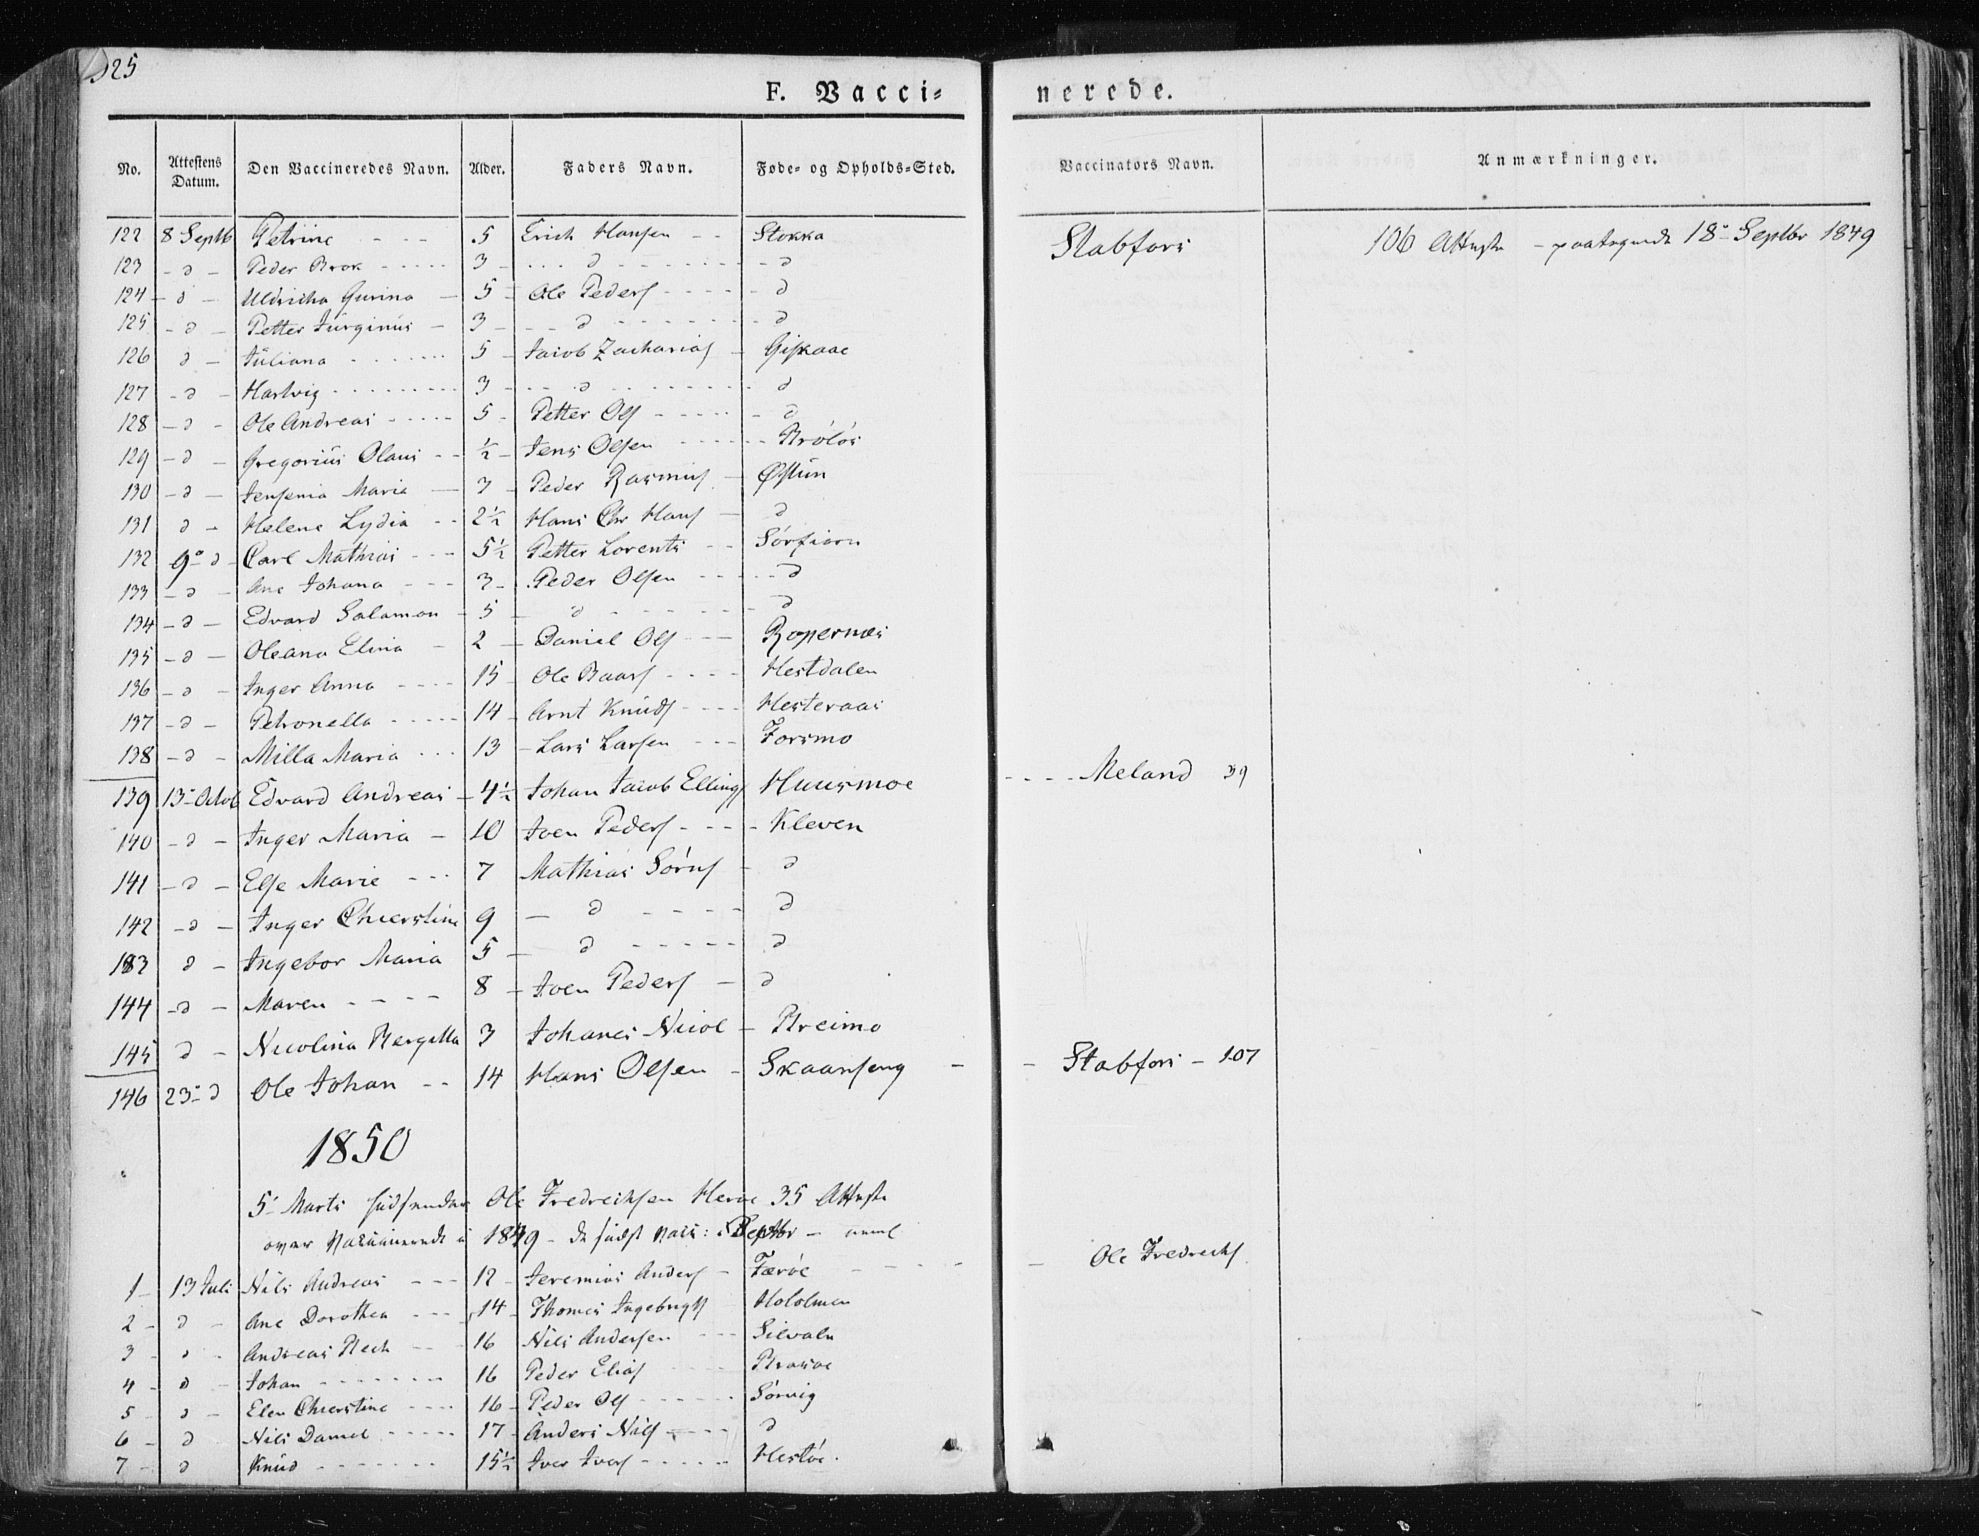 325
F. Vaccinerede.
No. | Attestens Datum. | Den Vaccineredes Navn. | Alder. | Faders Navn. | Føde- og Opholds-Sted. | Vaccinators Navn. | Anmærkninger.
122 | 8 Septb | Petrine - - - | 5 | Erich Hansen - - | Stokka | Stabfors | 106 Attester - paategnede 18 Septbr 1849
123 | - d - | Peder Brok - - - | 3 | - - d - - | d
124 | - d - | Uldricka Gurina - | 5 | Ole Peders - - - | d
125 | - d - | Petter Jürginus - | 3 | - - d - - | d
126 | d - | Juliana - - - | 5 | Jacob Zacharias - | Giskaae
127 | - d - | Hartvig - - - | 3 | - - d - - | d
128 | - d - | Ole Andreas - - - | 5 | Petter Ols - - - | d
129 | - d - | Gregorius Olaus - - | ½ | Jens Olsen - - - |
130 | - d - | Jensenia Maria - | 3 | Peder Rasmus | Østun
131 | d - | Helene Lydia - - | 2½ | Hans Chr Hans - | d
132 | 9 d - | Carl Mathias - - - | 5½ | Petter Lorents - - | Sørfiorn
133 | - d - | Ane Johana - - - | 3 | Peder Olsen - - - | d
134 | - d - | Edvard Salamon - | 5 | - d - - | d
135 | - d - | Oleana Elina - | 2 | Daniel Ols - - | Ropernæs
136 | - d - | Inger Anna - - - | 15 | Ole Baars - - - | Hestdalen
137 | - d - | Petronella - - - | 14 | Arnt Knuds - - - | Hesteraas
138 | - d - | Milla Maria - - - | 13 | Lars Larsen - - - | Forsmo
139 | 13 Octob | Edvard Andreas - | 4½ | Johan Jacob Ellings | Huusmoe | - - - - Meland 39
140 | - d - | Inger Maria - | 10 | Joen Peders - - - | Kleven
141 | - d - | Else Marie - - - | 7 | Mathias Sørns - | d
142 | - d - | Inger Chierstine | 9 | - d - - | d
143 | d - | Ingebor Maria | 5 | - d - - | d
144 | - d - | Maren - - - - | 8 | Joen Peders - | d
145 | d - | Nicolina Bergitta | 3 | Johanes Nicol - | Breimo
146 | 23 d | Ole Johan - - | 14 | Hans Olsen - | Skaanseng - | - Stabfors - 107
1850
5 Marts Ole Fredrichsen Herøe 35 Attester
over 1849 - Septbr -
1 - | 13 Juli | Nils Andreas - - - | 12 | Jeremias Anders - | Færøe - - - | - Ole Fredrichs
2 - | d - | Ane Dorothea - - - | 14 | Thomes Ingebrigts | Hololmen
3 - | d - | Andreas - - | 16 | Nils Andersen - - - |
4 - | d - | Johan - - - | 16 | Peder Elias - - - |
5 - | d - | Elen Chierstine - - - | 16 | Peder Ols - - - | Sørvig
6 - | d | Nils Daniel - - - | 17 | Anders Nils - - - | d
7 - | d | Knud - - - | 15½ | Iver Ivers - - - | Hestøe.